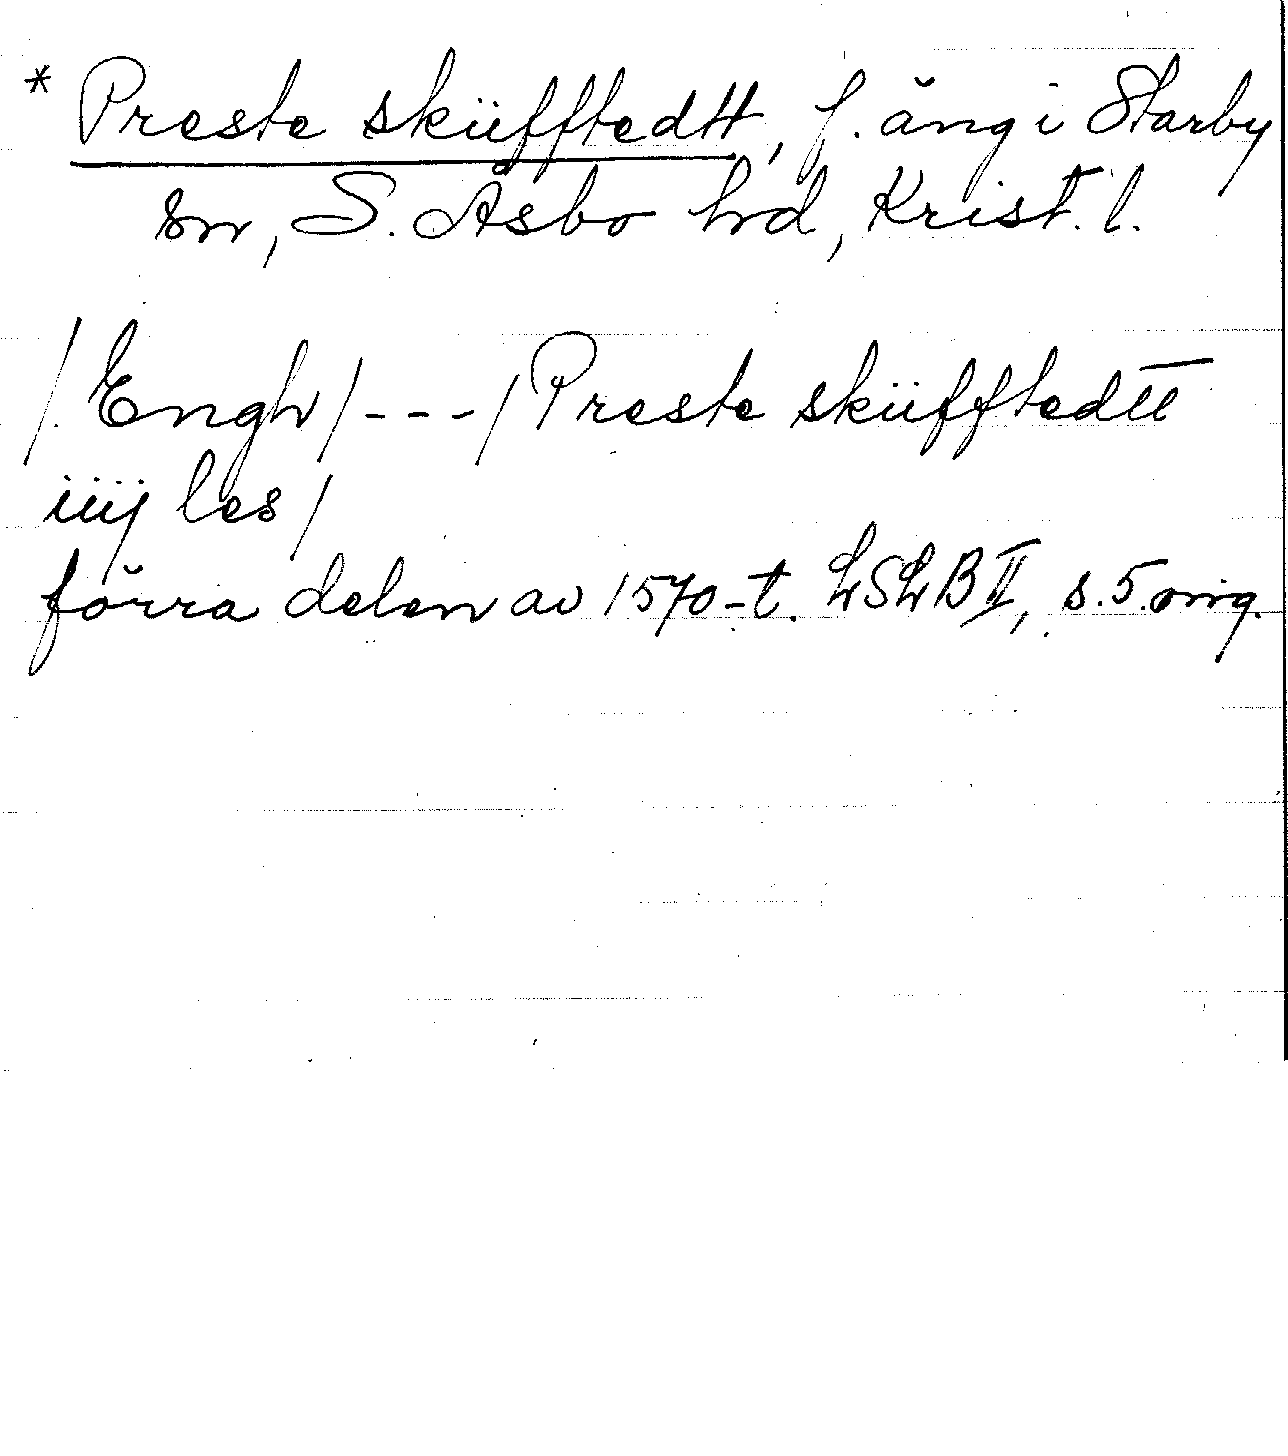 * Preste sküfftedtt, f. äng i Starby
sn, S. Åsbo hd, Krist. l.
/Engh/ - - - / Preste sküfftedtt
iiij les /
förra delen av 1570-t. LSLB II, s. 5. orig.